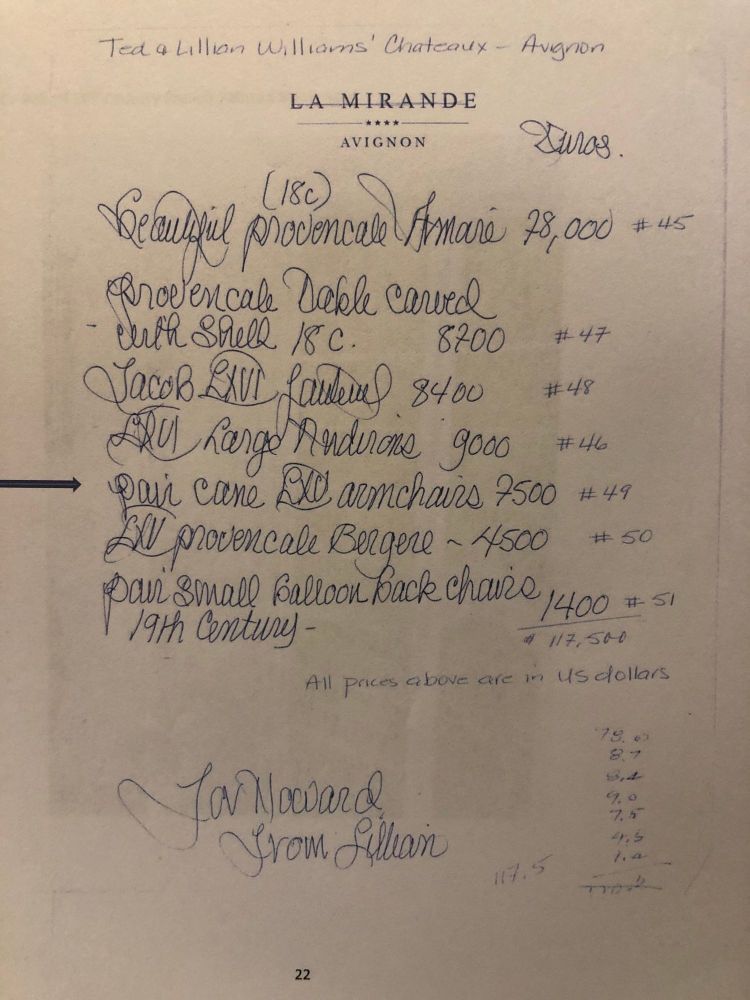 Ted & Lillian Williams' Chateaux - Avignon
LA MIRANDE
★★★★
AVIGNON
Euros.
(18c)
beautiful provencale Armare 78,000 #45
provencale Table carved
- with Shell 18 c. 8700 #47
Jacob LXVI fauteuil 8400 #48
LXVI Large Andirons 9000 #46
pair cane LXV armchairs 7500 #49
LXV provencale Bergere ~ 4500 #50
pair small Balloon back chairs 1400 #51
19th Century -
$ 117,500
All prices above are in US dollars
78.0
8.7
8.4
9.0
7.5
4.5
1.4
117.5
For Howard
From Lillian
22